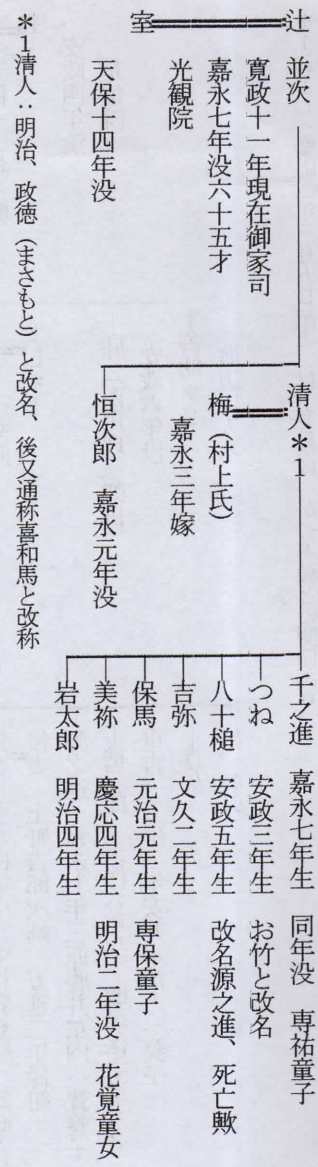 辻 並次
寛政十一年現在御家司
嘉永七年没六十五才
光観院
天保十四年没
室
清人*1
梅(村上氏)
嘉永三年嫁
恒次郎 嘉永元年没
千之進 嘉永七年生 同年没 専祐童子
つね 安政三年生 お竹と改名
八十槌 安政五年生 改名源之進、死亡歟
吉弥 文久二年生
保馬 元治元年生 専保童子
美祢 慶応四年生 明治二年没 花覚童女
岩太郎 明治四年生
*1清人:明治、政徳(まさもと)と改名、後又通称喜和馬と改称